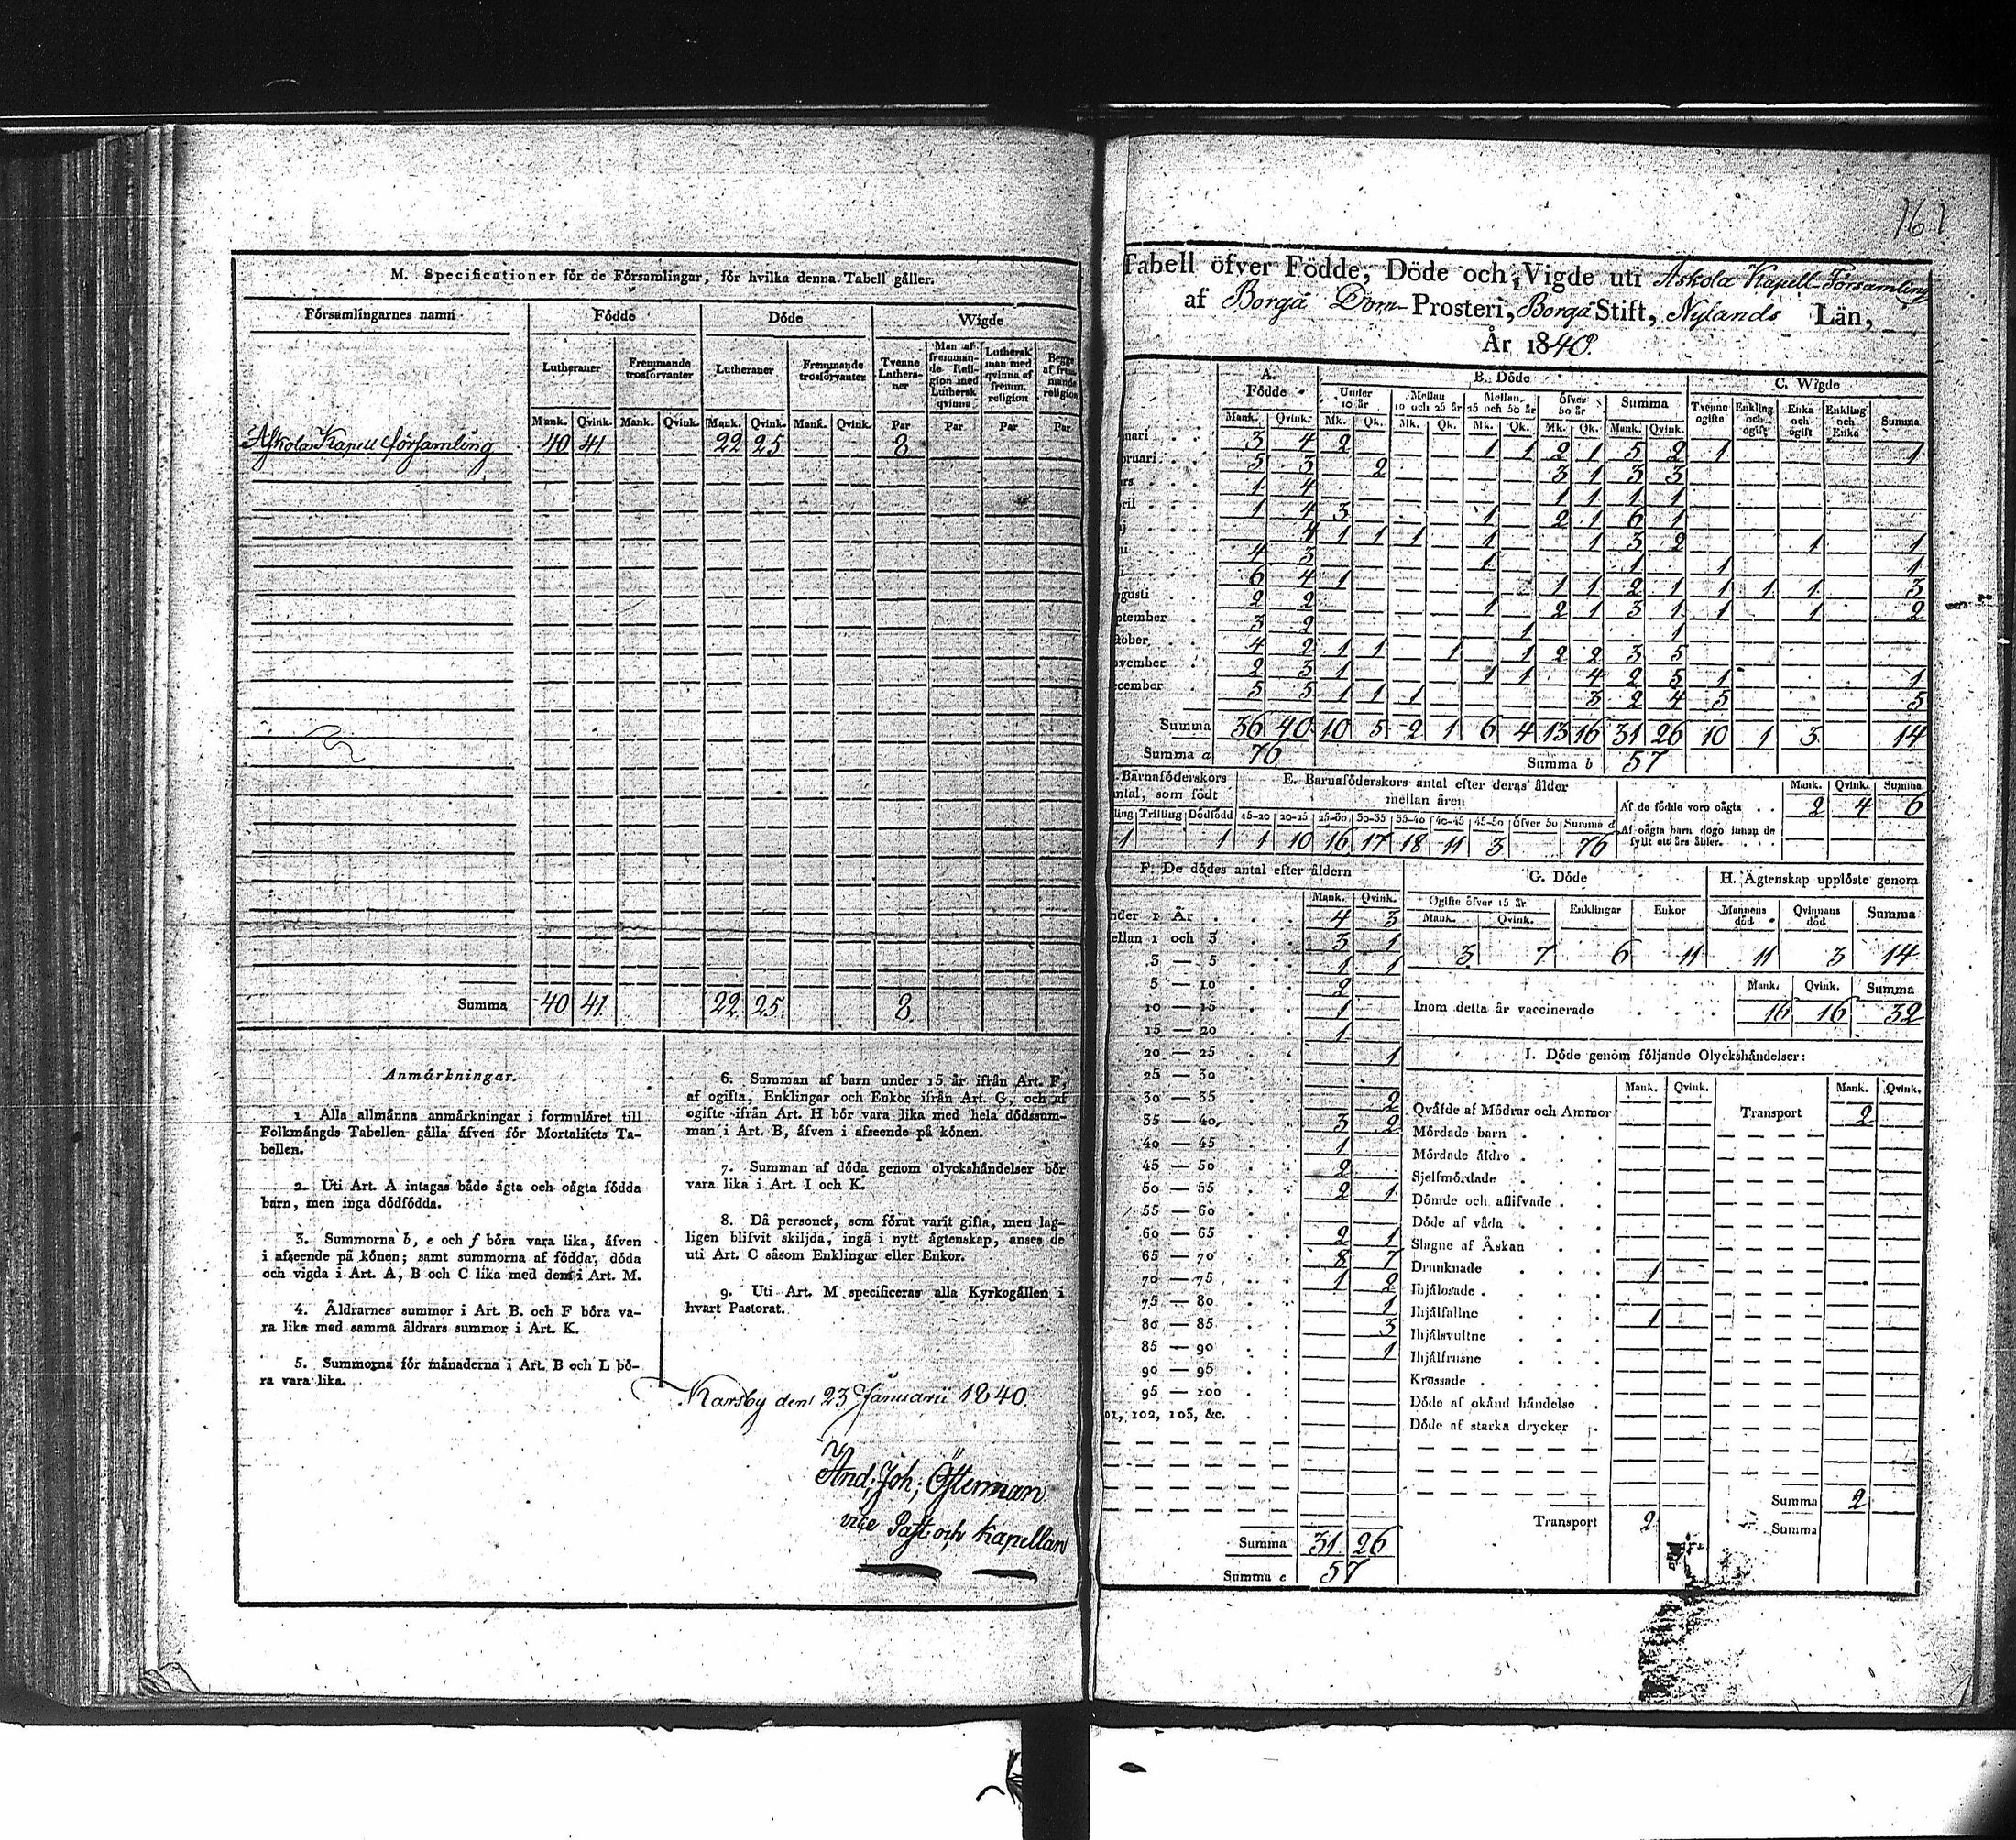 M. Specificationer för de Församlingar, för hvilka denna Tabell gäller.
Församlingarnes namn Födde Döde Wigde
Lutheraner Fremmande trosförvanter Lutheraner Fremmande trosförvanter Tvenne Lutheraner Man af fremmande Religion med Luthersk qvinna Luthersk man med qvinna af fremm. religion Begge af fremmande religion
Mank. Qvink. Mank. Qvink. Mank. Qvink. Mank. Qvink. Par Par Par Par
Askola Kapell församling 40 41 22 25 8
Summa 40 41 22 25 8
Anmärkningar.
1. Alla allmänna anmärkningar i formuläret till
Folkmängds Tabellen gälla äfven för Mortalitets Ta-
bellen.
2. Uti Art. A intagas både ägta och oägta födda
barn, men inga dödfödda.
3. Summorna b, e och f böra vara lika, äfven
i afseende på könen; samt summorna af födda, döda
och vigda i Art. A, B och C lika med dem i Art. M.
4. Åldrarnes summor i Art. B. och F böra va-
ra lika med samma åldrars summor i Art. K.
5. Summorna för månaderna i Art. B och L bö-
ra vara lika.
6. Summan af barn under 15 år ifrån Art. F,
af ogifta, Enklingar och Enkor ifrån Art. G, och af
ogifte ifrån Art. H bör vara lika med hela dödssum-
man i Art. B, äfven i afseende på könen.
7. Summan af döda genom olyckshändelser bör
vara lika i Art. I och K.
8. Då personer, som förut varit gifta, men lag-
ligen blifvit skiljda, ingå i nytt ägtenskap, anses de
uti Art. C såsom Enklingar eller Enkor.
9. Uti Art. M specificeras alla Kyrkogällen i
hvart Pastorat.
Karsby den 23 Januarii 1840.
And; Joh; Österman
vice Past: och Kapellan
161
Tabell öfver Födde, Döde och Vigde uti Askola Kapell-Församling
af Borgå Dom-Prosteri, Borgå Stift, Nylands Län,
År 1840.
A. Födde B. Döde C. Wigde
Under 10 år Mellan 10 och 25 år Mellan 25 och 50 år Öfver 50 år Summa Tvenne ogifte Enkling och ogift Enka och ogift Enkling och Enka Summa
Mank. Qvink. Mk. Qk. Mk. Qk. Mk. Qk. Mk. Qk. Mank. Qvink.
nuari 3 4 2 1 1 2 1 5 2 1 1
bruari 5 3 2 3 1 3 3
ars 1 4 1 1 1 1
pril 1 4 3 1 2 1 6 1
j 4 1 1 1 1 1 3 2 1 1
ni 4 3 1 1 1 1
li 6 4 1 1 1 2 1 1 1 1 3
gusti 2 2 1 2 1 3 1 1 1 2
ptember 3 2 1 1
tober 4 2 1 1 1 1 2 2 3 5
ovember 2 3 1 1 1 4 2 5 1 1
ecember 5 5 1 1 1 3 2 4 5 5
Summa 36 40 10 5 2 1 6 4 13 16 31 26 10 1 3 14
Summa a 76 Summa b 57
Barnaföderskors antal, som födt
ling Trilling Dödfödd
1 1
E. Barnaföderskors antal efter deras ålder
mellan åren
15-20 20-25 25-30 30-35 35-40 40-45 45-50 öfver 50 Summa d
1 10 16 17 18 11 3 76
Mank. Qvink. Summa
Af de födde voro oägta 2 4 6
Af oägta barn dogo innan de
fyllt ett års ålder.
F. De dödes antal efter åldern
Mank. Qvink.
nder 1 År 4 3
ellan 1 och 3 3 1
3 — 5 1 1
5 — 10 2
10 — 15 1
15 — 20 1
20 — 25 1
25 — 30
30 — 35 2
35 — 40 3 2
40 — 45 1
45 — 50 2
50 — 55 2 1
55 — 60
60 — 65 2 1
65 — 70 8 7
70 — 75 1 2
75 — 80 1
80 — 85 3
85 — 90 1
90 — 95
95 — 100
01, 102, 103, &c.
Summa 31 26
Summa e 57
G. Döde
Ogifte öfver 15 år Enklingar Enkor
Mank. Qvink.
3 7 6 11
H. Ägtenskap upplöste genom
Mannens död Qvinnans död Summa
11 3 14
Mank. Qvink. Summa
Inom detta år vaccinerade 16 16 32
I. Döde genom följande Olyckshändelser:
Mank. Qvink. Mank. Qvink.
Qväfde af Mödrar och Ammor Transport 2
Mördade barn
Mördade äldre
Sjelfmördade
Dömde och aflifvade
Döde af våda
Slagne af Åskan
Drunknade 1
Ihjälosade
Ihjälfallne 1
Ihjälsvultne
Ihjälfrusne
Krossade
Döde af okänd händelse
Döde af starka drycker
Summa 2
Transport 2 Summa